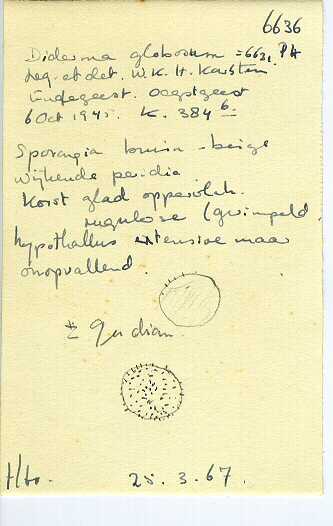 6636
Diderma globosum = 6631 PA
Leg. et det. W.K.H. Karsten
Endegeest. Oegstgeest
6 Oct 1945. K. 384 b.
Sporangia bruin-beige
wijkende peridia
Korst glad oppervlak.
rugulose (gerimpeld
hypothallus extensive maar
onopvallend.
± 9 μ diam
25.3.67.